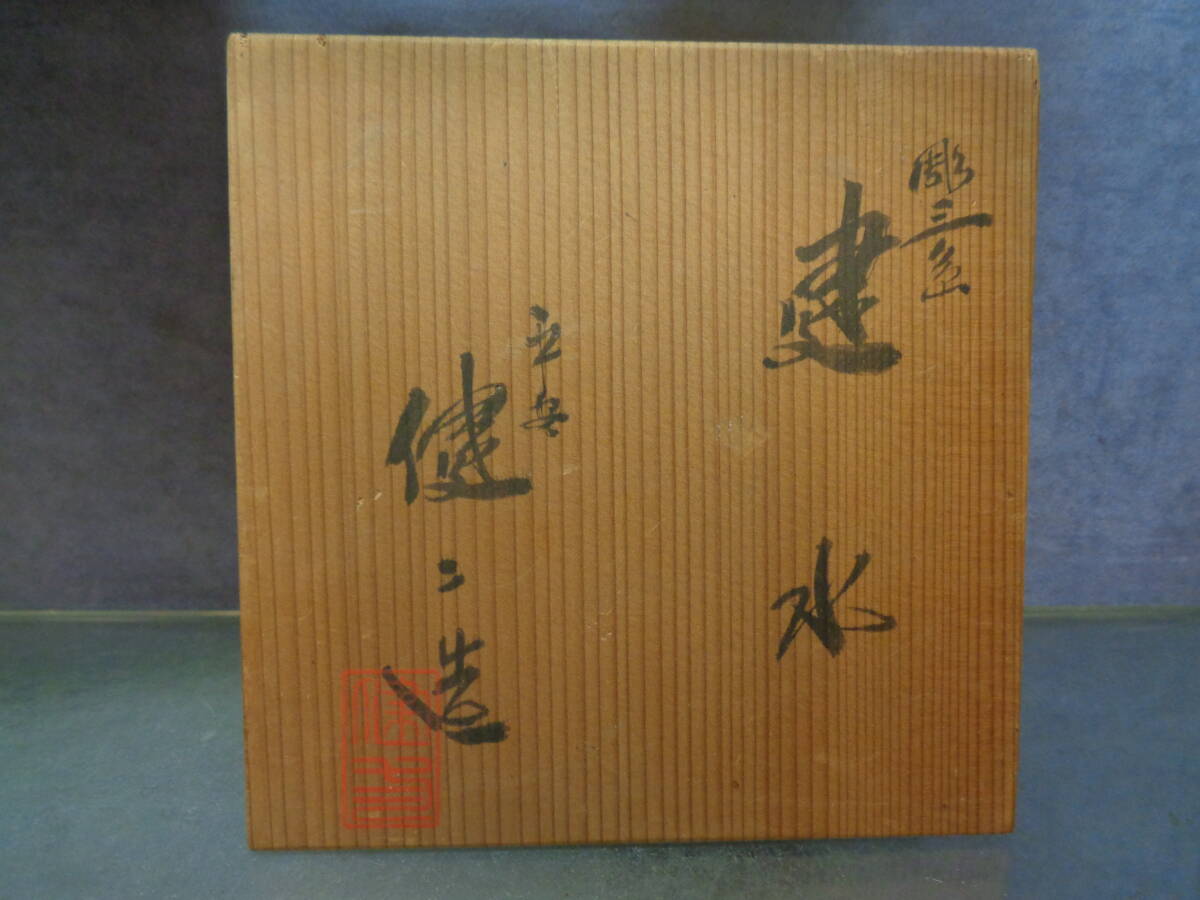 彫三島
建水
健二造